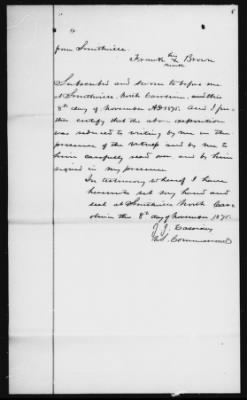 from Smithville.
his
Frank X Brown
mark
Subscribed and sworn to before me
at Smithville, North Carolina, and this
8th day of November AD 1875. And I fur
ther certify that the above deposition
was reduced to writing by me in the
presence of the witness and by me to
him carefully read over and by him
signed in my presence.
In testimony whereof I have
hereunto set my hand and
seal at Smithville North Caro
olina this 8th day of November 1875.
J. J.
Commissioner